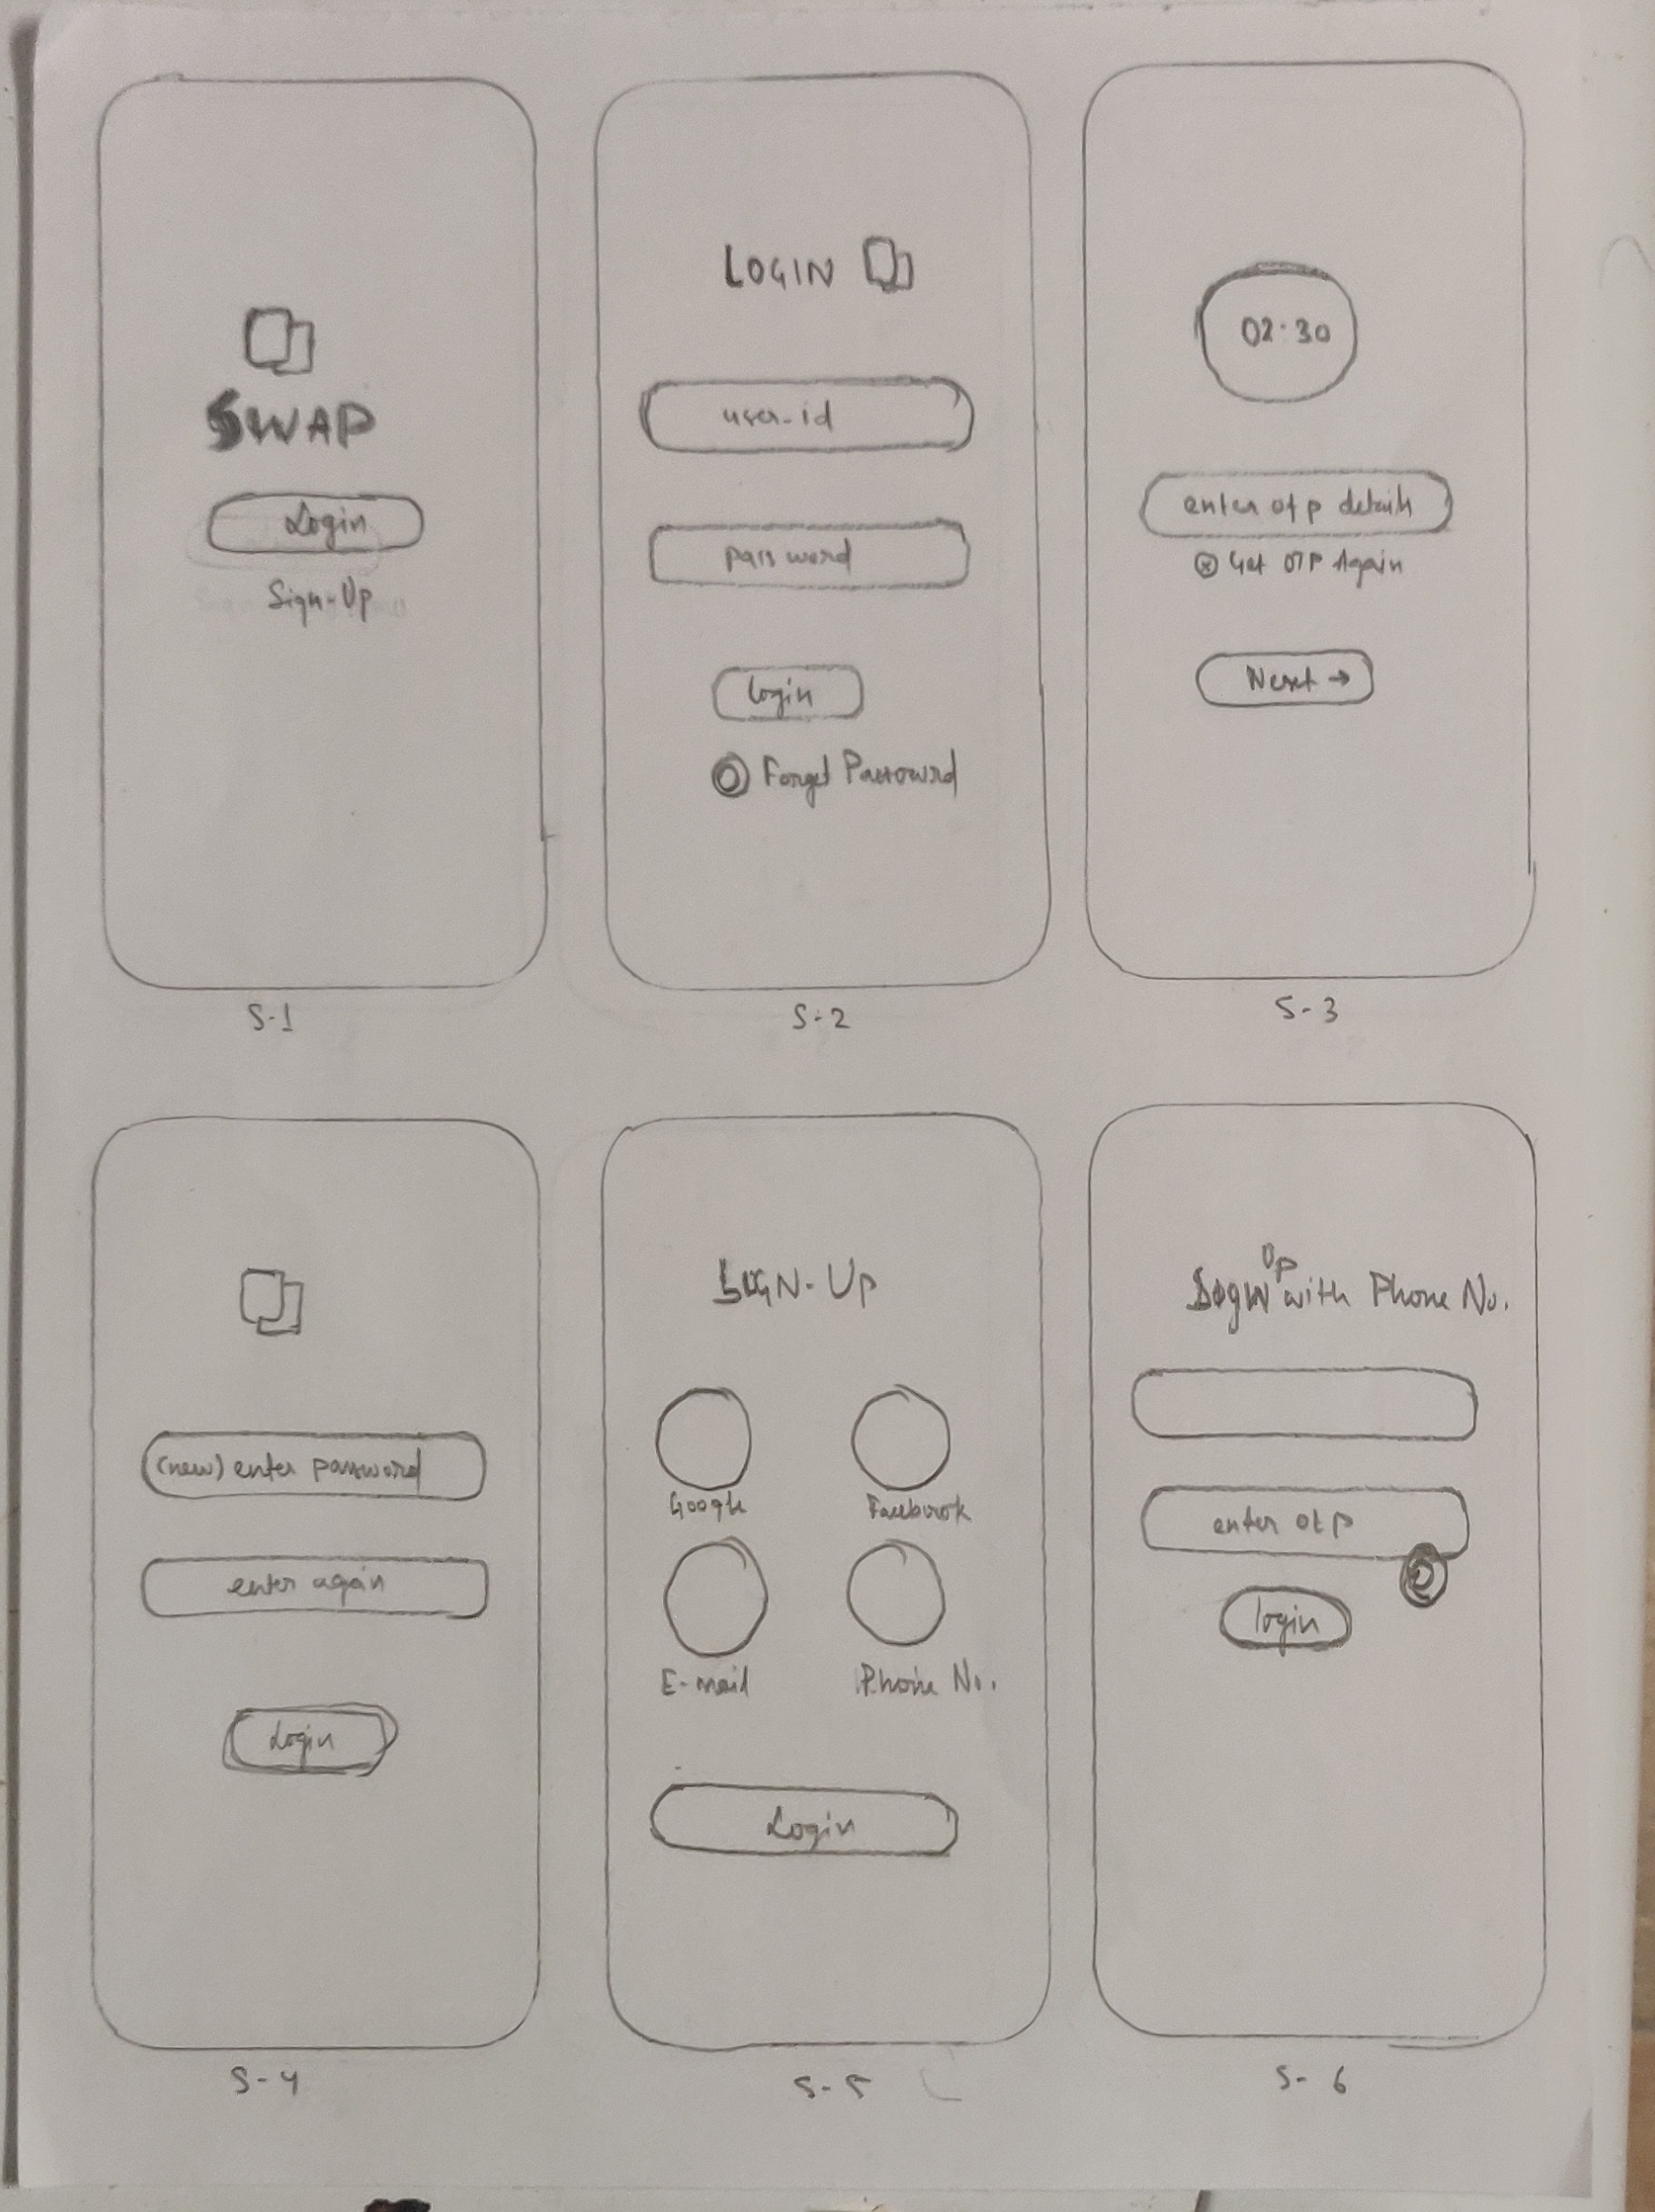 SWAP
Login
Sign-Up
S-1
LOGIN
user-id
password
login
Forget Password
S-2
02:30
enter otp details
Get OTP Again
Next →
S-3
(new) enter password
enter again
Login
S-4
SIGN-UP
Google
Facebook
E-mail
Phone No.
Login
S-5
Sign Up with Phone No.
enter otp
login
S-6